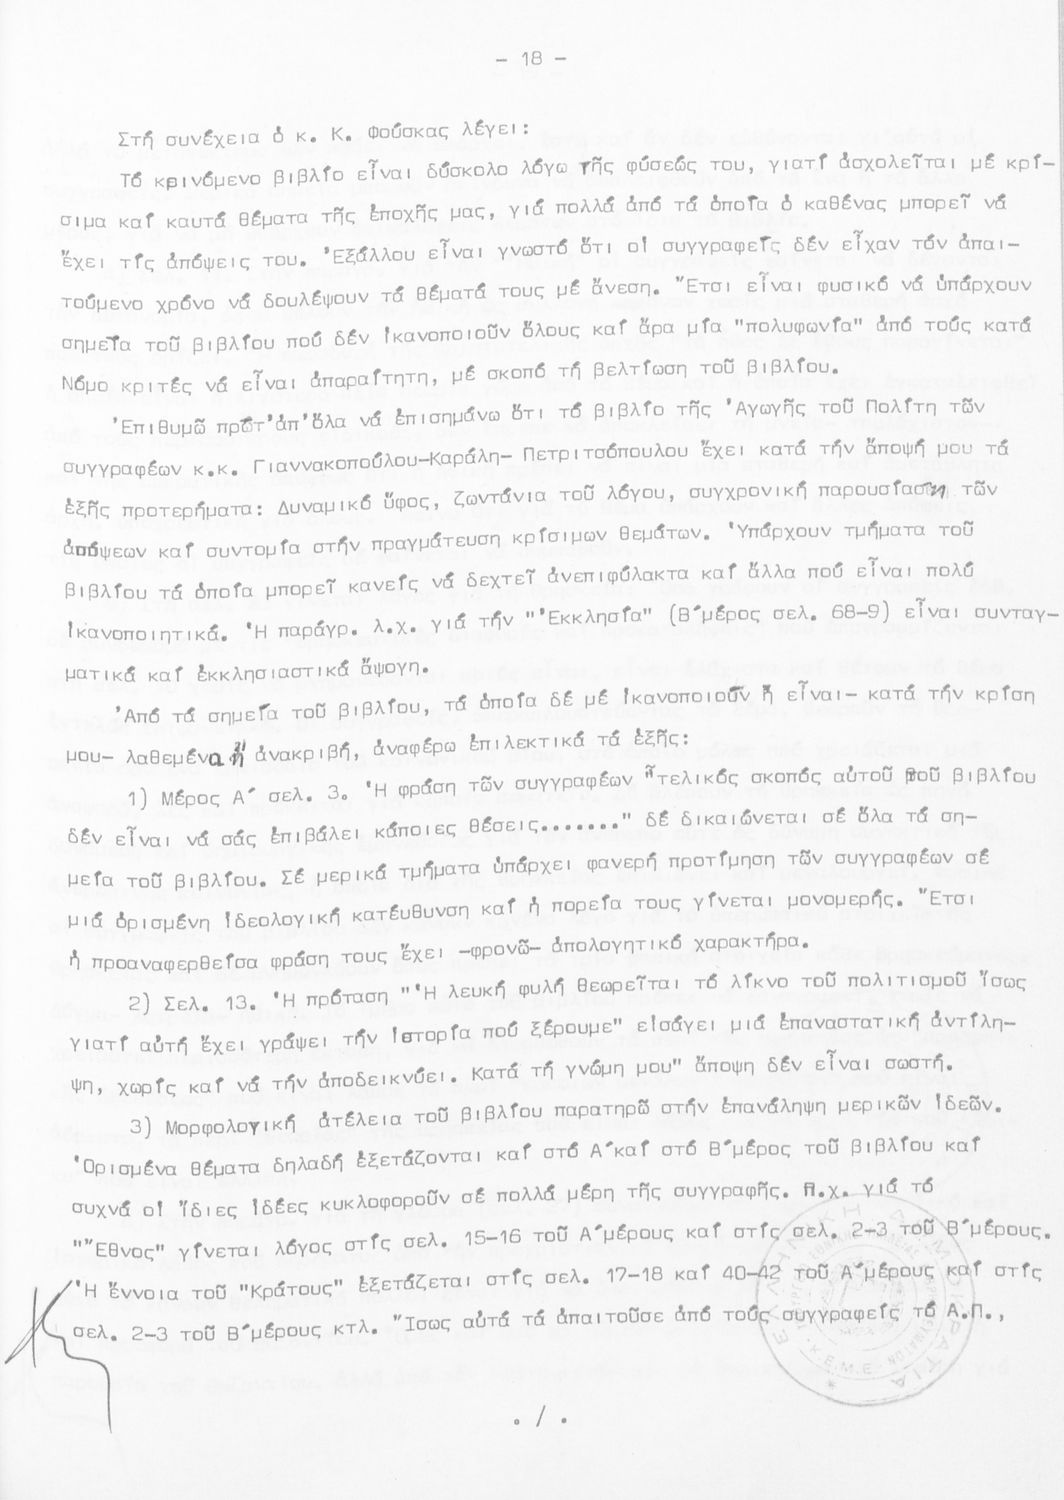 - 18 -
Στή συνέχεια ὁ κ. Κ. Φούσκας λέγει:
Τό κρινόμενο βιβλίο εἶναι δύσκολο λόγω τῆς φύσεώς του, γιατί ἀσχολεῖται μέ κρί-
σιμα καί καυτά θέματα τῆς ἐποχῆς μας, γιά πολλά ἀπό τά ὁποῖα ὁ καθένας μπορεῖ νά
ἔχει τίς ἀπόψεις του. Ἐξάλλου εἶναι γνωστό ὅτι οἱ συγγραφεῖς δέν εἶχαν τόν ἀπαι-
τούμενο χρόνο νά δουλέψουν τά θέματά τους μέ ἄνεση. Ἔτσι εἶναι φυσικό νά ὑπάρχουν
σημεῖα τοῦ βιβλίου πού δέν ἱκανοποιοῦν ὅλους καί ἄρα μία "πολυφωνία" ἀπό τούς κατά
Νόμο κριτές νά εἶναι ἀπαραίτητη, μέ σκοπό τή βελτίωση τοῦ βιβλίου.
Ἐπιθυμῶ πρῶτ'ἀπ'ὅλα νά ἐπισημάνω ὅτι τό βιβλίο τῆς Ἀγωγῆς τοῦ Πολίτη τῶν
συγγραφέων κ.κ. Γιαννακοπούλου-Καράλη- Πετριτσόπουλου ἔχει κατά τήν ἄποψή μου τά
ἑξῆς προτερήματα: Δυναμικό ὕφος, ζωντάνια τοῦ λόγου, συγχρονική παρουσίαση τῶν
ἀπόψεων καί συντομία στήν πραγμάτευση κρίσιμων θεμάτων. Ὑπάρχουν τμήματα τοῦ
βιβλίου τά ὁποῖα μπορεῖ κανείς νά δεχτεῖ ἀνεπιφύλακτα καί ἄλλα πού εἶναι πολύ
ἱκανοποιητικά. Ἡ παράγρ. λ.χ. γιά τήν "Ἐκκλησία" (Β΄μέρος σελ. 68-9) εἶναι συνταγ-
ματικά καί ἐκκλησιαστικά ἄψογη.
Ἀπό τά σημεῖα τοῦ βιβλίου, τά ὁποῖα δέ μέ ἱκανοποιοῦν ἤ εἶναι- κατά τήν κρίση
μου- λαθεμένα ἤ ἀνακριβή, ἀναφέρω ἐπιλεκτικά τά ἑξῆς:
1) Μέρος Α΄ σελ. 3. Ἡ φράση τῶν συγγραφέων "τελικός σκοπός αὐτοῦ τοῦ βιβλίου
δέν εἶναι νά σᾶς ἐπιβάλει κάποιες θέσεις......." δέ δικαιώνεται σέ ὅλα τά ση-
μεῖα τοῦ βιβλίου. Σέ μερικά τμήματα ὑπάρχει φανερή προτίμηση τῶν συγγραφέων σέ
μιά ὁρισμένη ἰδεολογική κατέυθυνση καί ἡ πορεία τους γίνεται μονομερής. Ἔτσι
ἡ προαναφερθεῖσα φράση τους ἔχει -φρονῶ- ἀπολογητικό χαρακτήρα.
2) Σελ. 13. Ἡ πρόταση "Ἡ λευκή φυλή θεωρεῖται τό λίκνο τοῦ πολιτισμοῦ ἴσως
γιατί αὐτή ἔχει γράψει τήν ἱστορία πού ξέρουμε" εἰσάγει μιά ἐπαναστατική ἀντίλη-
ψη, χωρίς καί νά τήν ἀποδεικνύει. Κατά τή γνώμη μου" ἄποψη δέν εἶναι σωστή.
3) Μορφολογική ἀτέλεια τοῦ βιβλίου παρατηρῶ στήν ἐπανάληψη μερικῶν ἰδεῶν.
Ὁρισμένα θέματα δηλαδή ἐξετάζονται καί στό Α΄καί στό Β΄μέρος τοῦ βιβλίου καί
συχνά οἱ ἴδιες ἰδέες κυκλοφοροῦν σέ πολλά μέρη τῆς συγγραφῆς. Π.χ. γιά τό
"Ἔθνος" γίνεται λόγος στίς σελ. 15-16 τοῦ Α΄μέρους καί στίς σελ. 2-3 τοῦ Β΄μέρους.
Ἡ ἔννοια τοῦ "Κράτους" ἐξετάζεται στίς σελ. 17-18 καί 40-42 τοῦ Α΄μέρους καί στίς
σελ. 2-3 τοῦ Β΄μέρους κτλ. Ἴσως αὐτά τά ἀπαιτοῦσε ἀπό τούς συγγραφεῖς τό Α.Π.,
ΕΛΛΗΝΙΚΗ ΔΗΜΟΚΡΑΤΙΑ
Κ.Ε.Μ.Ε.
./.